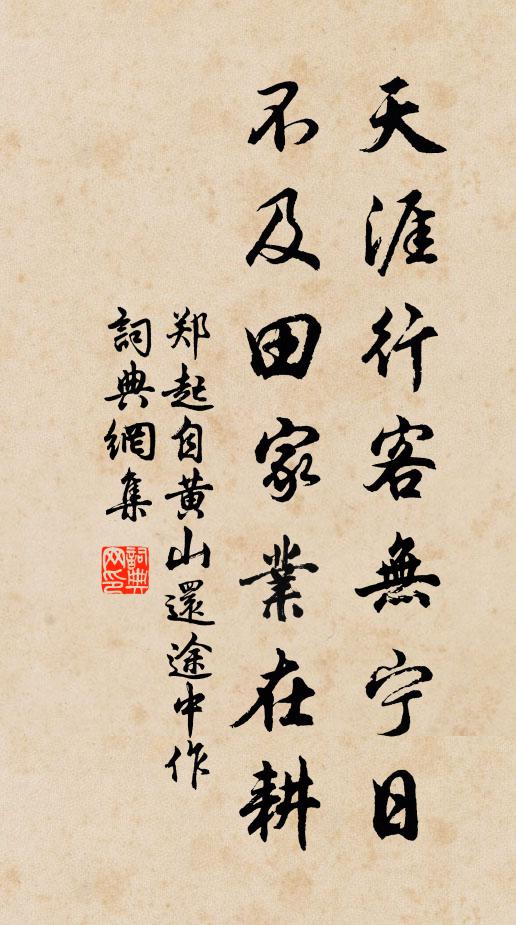 天涯行客無宁日
不及田家業在耕
郑起自黄山還途中作
詞典網集
詞典网印